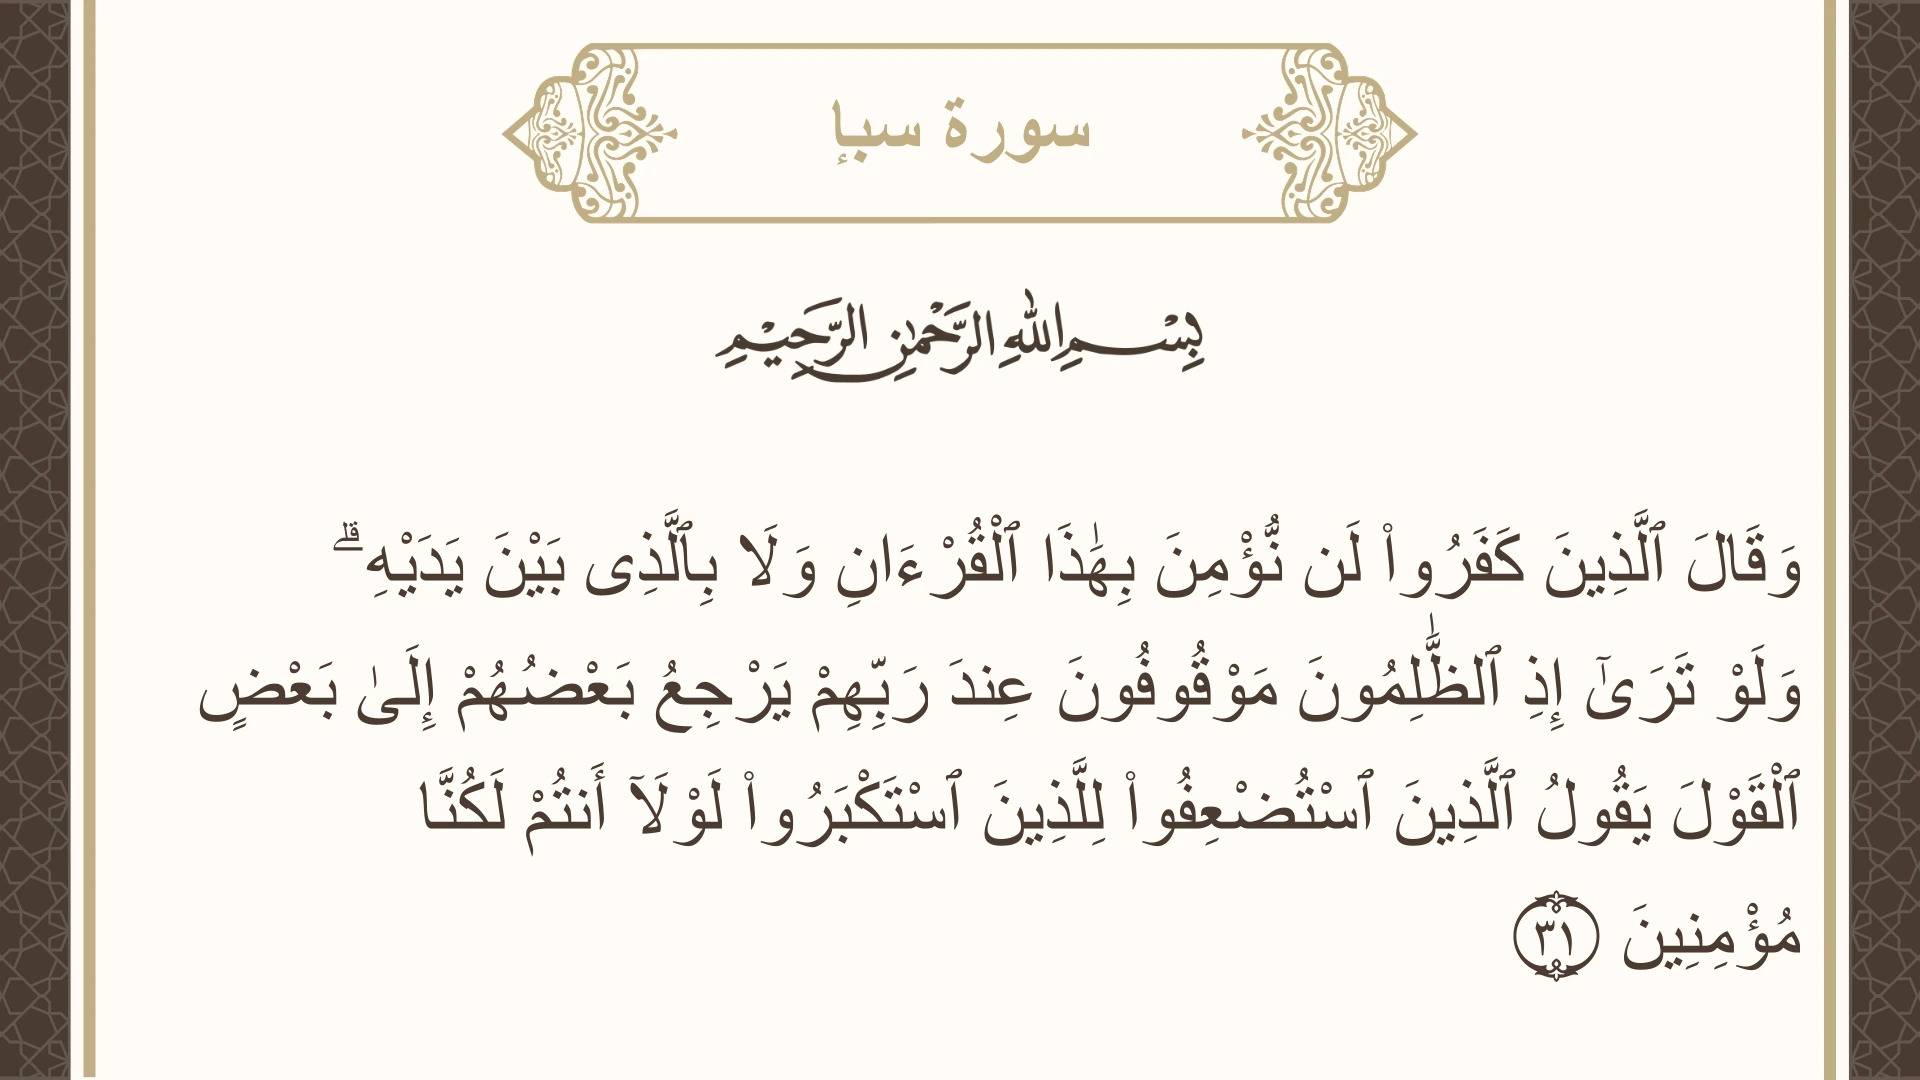 سورة سبإ
بِسْمِ اللهِ الرَّحْمٰنِ الرَّحِيْمِ
وَقَالَ ٱلَّذِينَ كَفَرُوا۟ لَن نُّؤْمِنَ بِهَٰذَا ٱلْقُرْءَانِ وَلَا بِٱلَّذِى بَيْنَ يَدَيْهِ ۗ
وَلَوْ تَرَىٰٓ إِذِ ٱلظَّٰلِمُونَ مَوْقُوفُونَ عِندَ رَبِّهِمْ يَرْجِعُ بَعْضُهُمْ إِلَىٰ بَعْضٍ
ٱلْقَوْلَ يَقُولُ ٱلَّذِينَ ٱسْتُضْعِفُوا۟ لِلَّذِينَ ٱسْتَكْبَرُوا۟ لَوْلَآ أَنتُمْ لَكُنَّا
مُؤْمِنِينَ ٣١